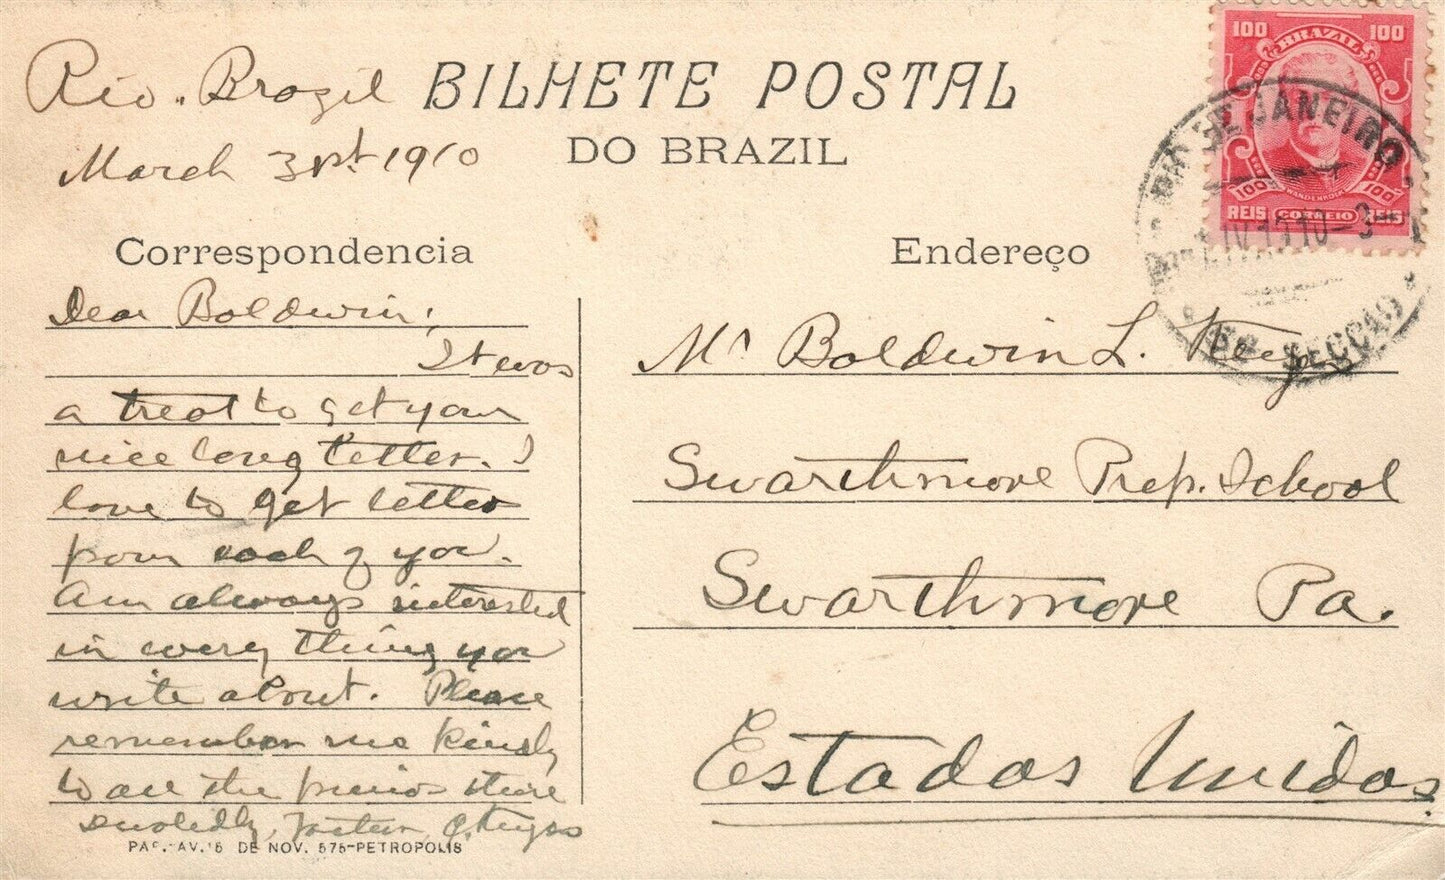 Rio. Brazil
March 31st 1910
BILHETE POSTAL
DO BRAZIL
100 BRAZIL 100
WANDENKOLK
100 100
REIS CORREIO REIS
RIO DE JANEIRO
SECCÃO
Correspondencia
Endereço
Dear Baldwin;
It was
a treat to get your
nice long letter. I
love to get letters
from each of you.
Am always interested
in every thing you
write about. Please
remember me kindly
to all the friends there
devotedly,
PAP. AV. 15 DE NOV. 575-PETROPOLIS
Mr Baldwin L. Keyes
Swarthmore Prep. School
Swarthmore Pa.
Estados Unidos